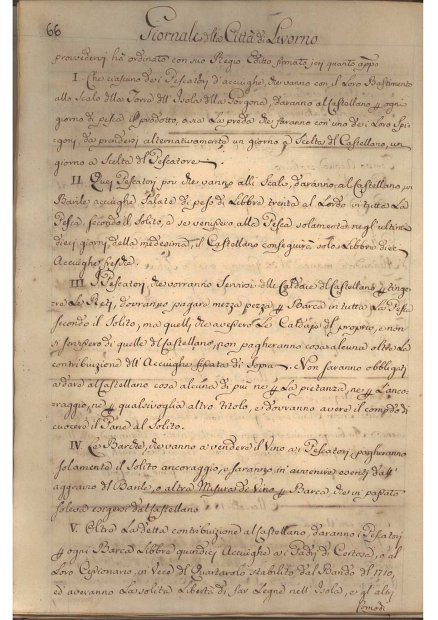 66
Giornale della Città di Livorno
provedersi hà ordinato con suo Regio Editto firmato jeri quanto appo
I. Che ciascuno dei Pescatori d'acciughe, che vanno con il Loro Bastimento
allo Scalo della Torre dell'Isola della Gorgona, daranno al Castellano per ogni
giorno di pesca il prodotto, o sia La preda che faranno con uno dei Loro Spi-
goni, da prendersi alternativamente un giorno a Scelta del Castellano, un
giorno a Scelta del Pescatore
II. Quei Pescatori poi che vanno alli Scali, daranno al Castellano, un
Barile acciughe Salate di peso di Libbre trenta al Lordo per tutta La
Pesca secondo il Solito, e se venissero alla Pesca solamente negl'ultimi
dieci giorni della medesima, il Castellano conseguirà solo Libbre dieci
Acciughe fresche.
III. I Pescatori, che vorranno Servirsi delle Caldaie del Castellano per tinger
Le Reti, dovranno pagare mezza pezza per Barca in tutta La Pesca
secondo il Solito, ma quelli, che avessero Le Caldaje del proprio, e non
si servissero di quelle del Castellano, non pagheranno cosa alcuna oltre La
contribuzione dell'Acciughe di Sopra. Non saranno obbligati
a dare al Castellano cosa alcuna di più ne per La pietanza, ne per L'anco-
raggio, ne per qualsivoglia altro titolo, e dovranno avere il comodo di
cuocere il Pane al Solito.
IV. Le Barche, che vanno a vendere il Vino ai Pescatori pagheranno
solamente il Solito ancoraggio, e saranno in avvenire esenti dall'
aggravio del Barile, o altra Misura di Vino per Barca, che in passato
soleva corgersi dal Castellano
V. Oltre La detta contribuzione al Castellano, daranno i Pescatori
per ogni Barca Libbre quindici Acciughe ai Padri di Certosa, o al
Loro Commissionario, in Vece del Quartarolo stabilito dal Bando del 1710,
ed averanno La solita Libertà di far Legne nell'Isola, e gl'altri
comodi